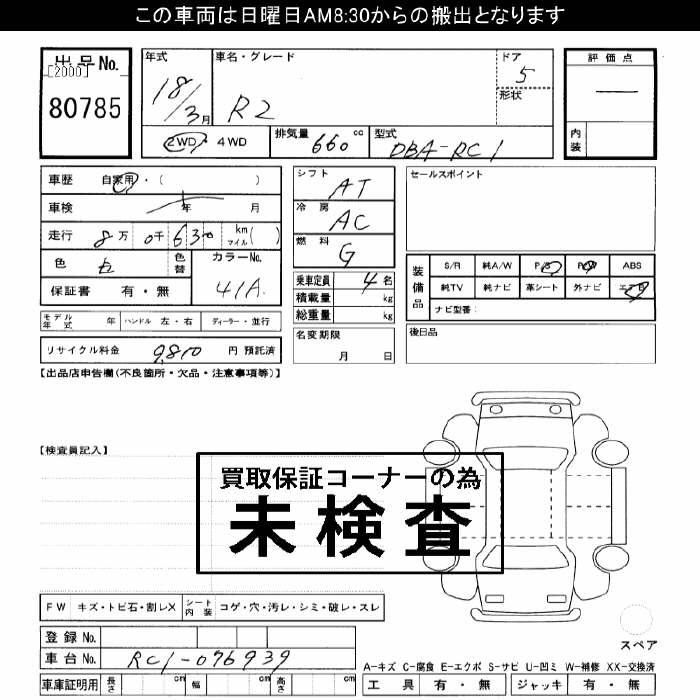 この車両は日曜日AM8:30からの搬出となります
出品No.
[2000]
80785
年式
18/3月
車名・グレード
R2
ドア
5
形状
評価点
内装
2WD・4WD
排気量 660 cc
型式 DBA-RC1
車歴 自家用・( )
車検 年 月
走行 8万0千630 km マイル( )
色
色替
カラーNo.
41A
保証書 有・無
シフト AT
冷房 AC
燃料 G
乗車定員 4名
積載量 kg
総重量 kg
名変期限
月 日
セールスポイント
装備品
S/R 純A/W P/S P/W ABS
純TV 純ナビ 革シート 外ナビ エアB
ナビ型番:
後日品
モデル年式 年 ハンドル 左・右 ディーラー・並行
リサイクル料金 9,810 円 預託済
【出品店申告欄(不良箇所・欠品・注意事項等)】
【検査員記入】
買取保証コーナーの為
未検査
FW キズ・トビ石・割レX シート内装 コゲ・穴・汚レ・シミ・破レ・スレ
登録 No.
車台 No. RC1-076939
車庫証明用 長さ cm 幅 cm 高さ cm
スペア
A-キズ C-腐食 E-エクボ S-サビ U-凹ミ W-補修 XX-交換済
工具 有・無 ジャッキ 有・無